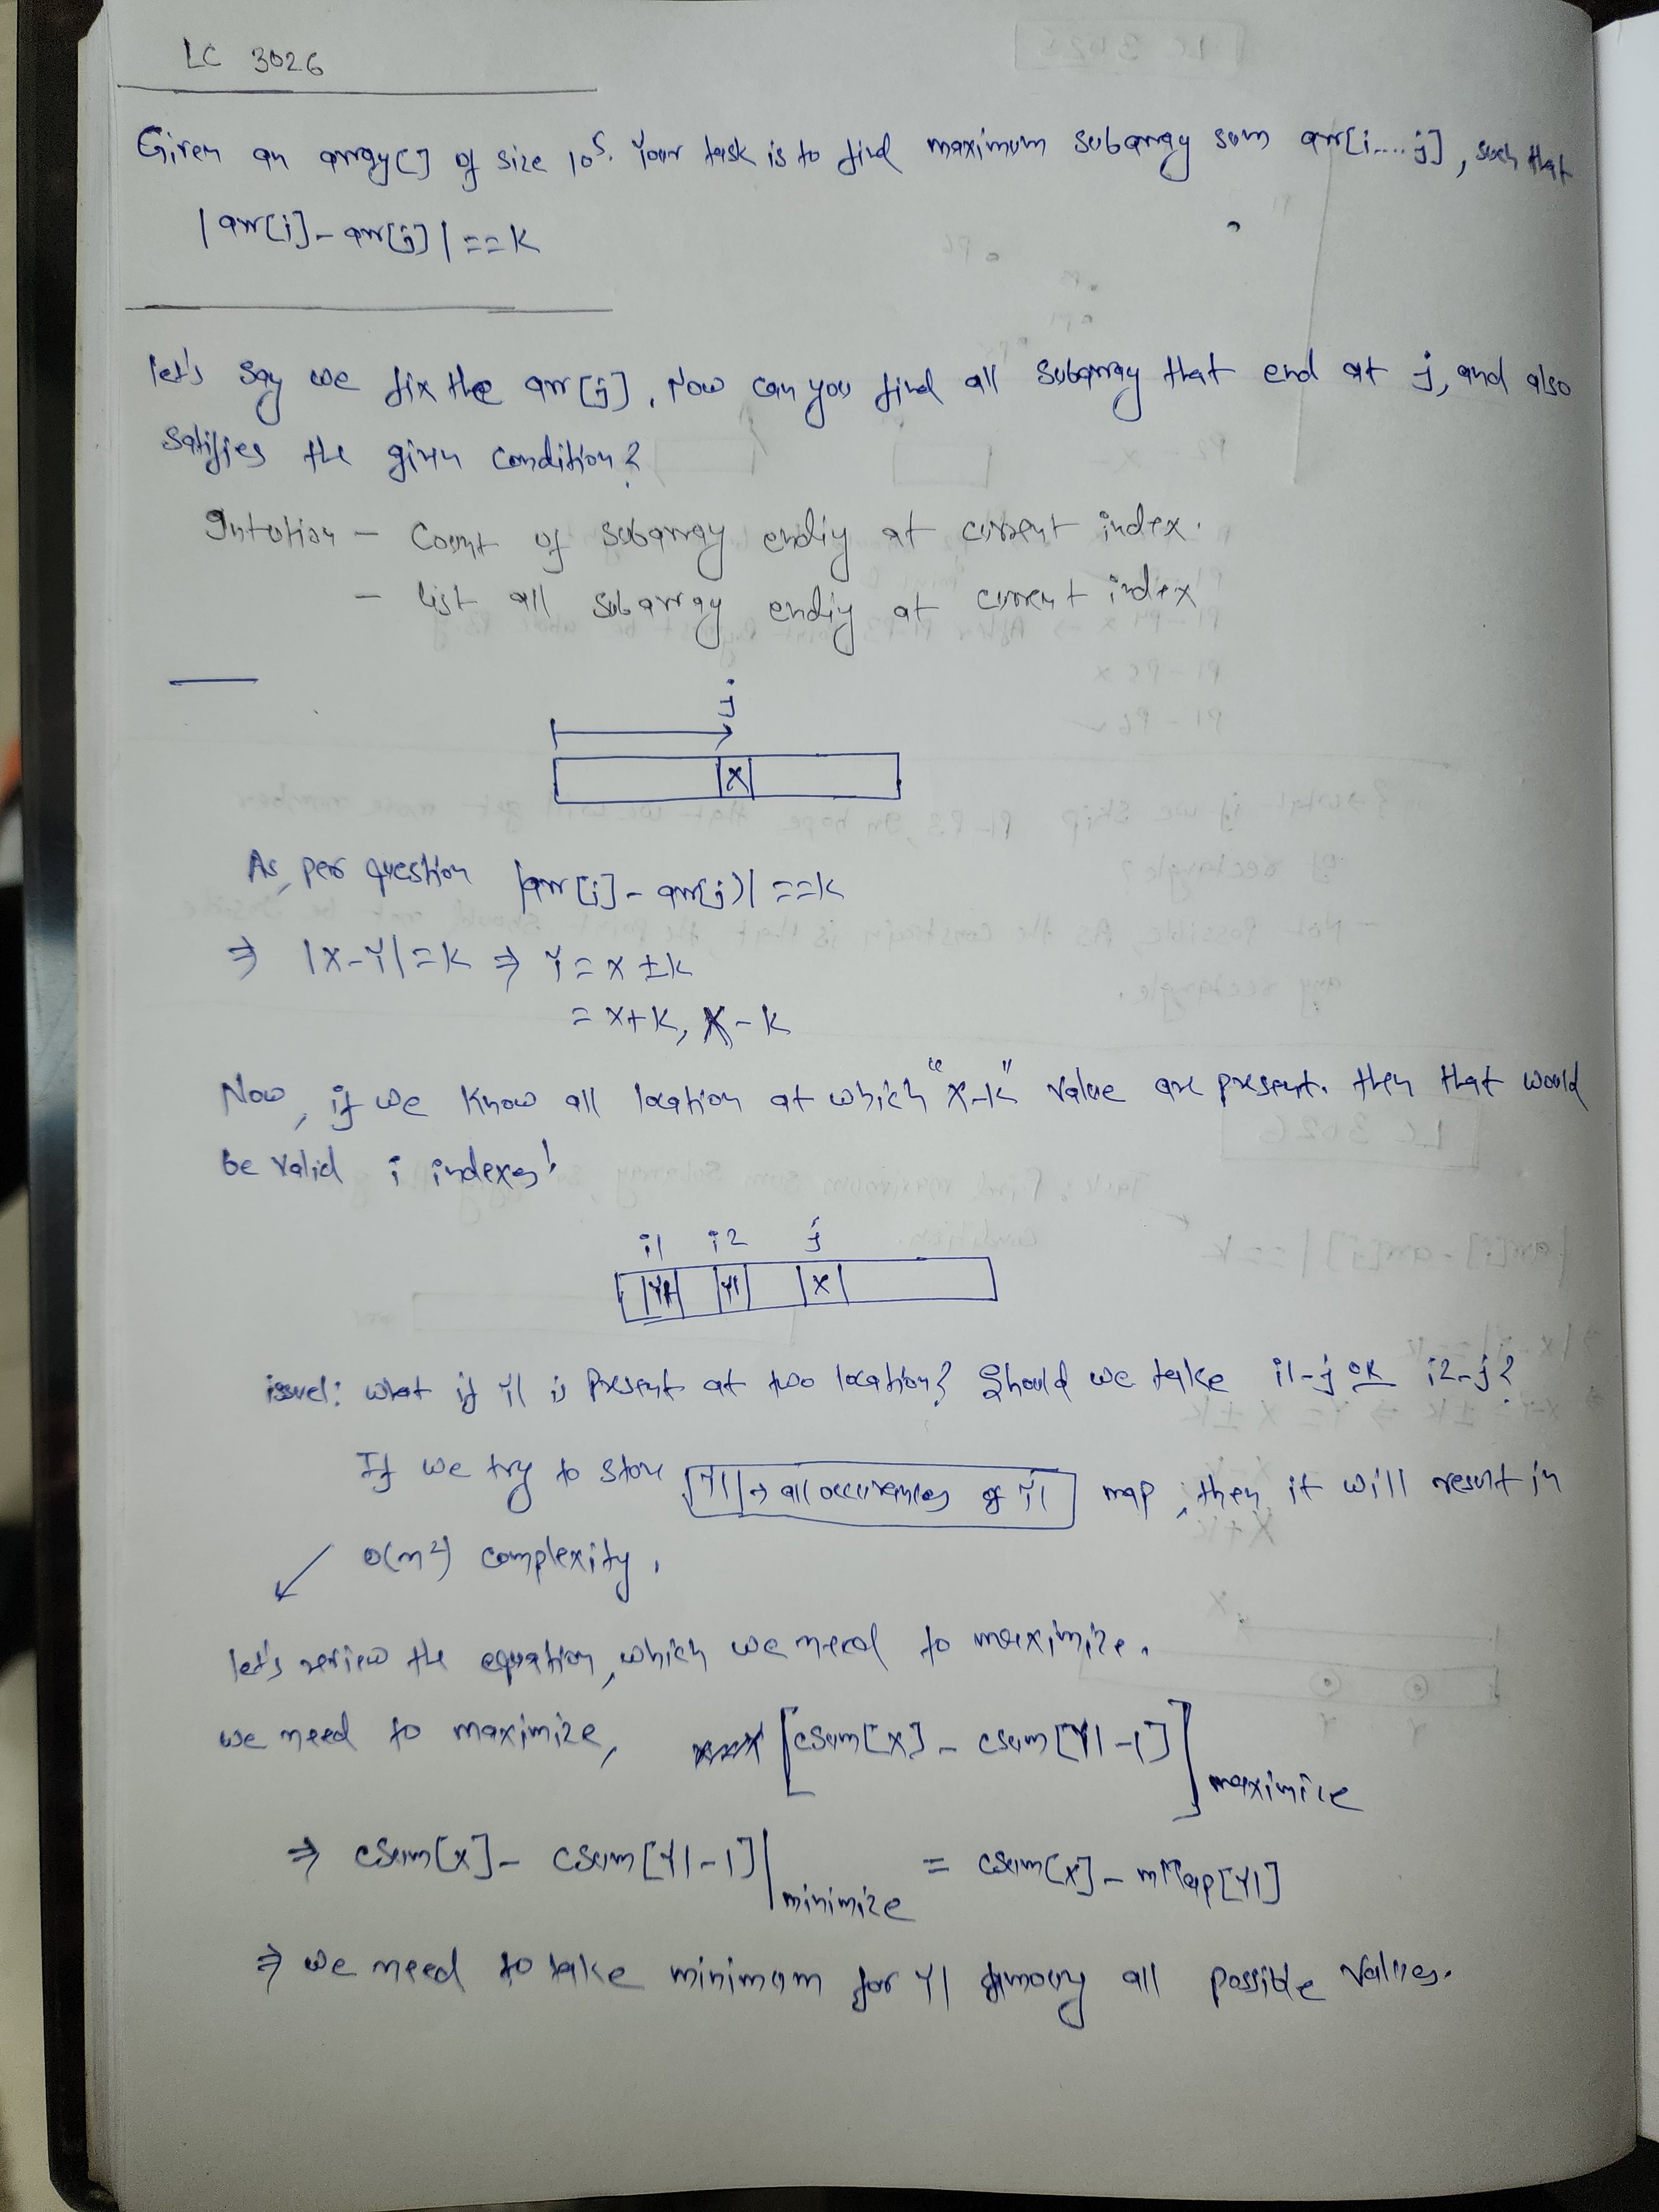 LC 3026
Given an array[] of size 10^5. Your task is to find maximum subarray sum arr[i....j], such that
|arr[i]-arr[j]|==K
let's say we fix the arr[j]. Now can you find all subarray that end at j, and also
satifies the given condition?
Intution - Count of subarray endiy at current index.
- list all subarray endiy at current index
j
X
As per question |arr[i]-arr[j]|==K
⇒ |X-Y|=K ⇒ Y = X ± K
= X+K, X-K
Now, if we know all location at which "X-K" value are present. then that would
be valid i indexes!
i1 i2 j
Y1 Y1 X
issue1: what if Y1 is present at two location? Should we take i1-j or i2-j?
If we try to store Y1 → all occurences of Y1 map, then it will result in
O(n²) complexity.
let's review the equation, which we need to maximize.
we need to maximize, [csum[X] - csum[Y1-1]] maximize
⇒ csum[X] - csum[Y1-1]| minimize = csum[X] - mMap[Y1]
⇒ we need to take minimum for Y1 among all possible values.